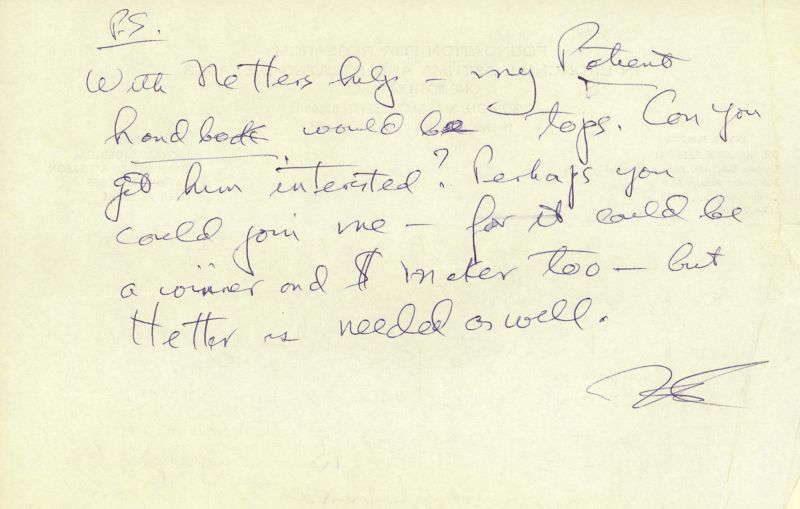 P.S.
With Netters help – my Patient
handbook would be tops. Can you
get him interested? Perhaps you
could join me – for it could be
a winner and $ maker too – but
Netter is needed as well.